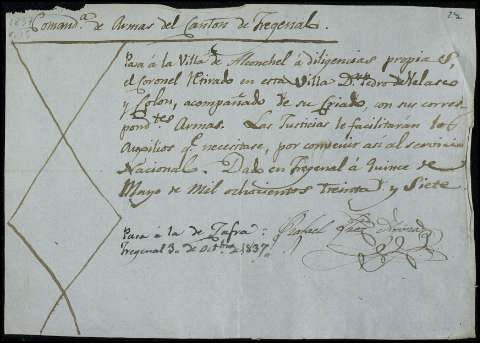 1837
22
Comand.ª de Armas del Canton de Fregenal
Pasa á la Villa de Alconchel á diligencias propias,
el Coronel Retirado en esta Villa Dn. Pedro de Velasco
y Colon, acompañado de su Criado, con sus corres-
pond.tes Armas. Las Justicias le facilitarán los
Auxilios q.e necesitase, por convenir asi al servicio
Nacional. Dado en Fregenal á quince de
Mayo de Mil ochocientos treinta y Siete
Pasa á la de Zafra:
Fregenal 3 de Octbre 1837
Rafael